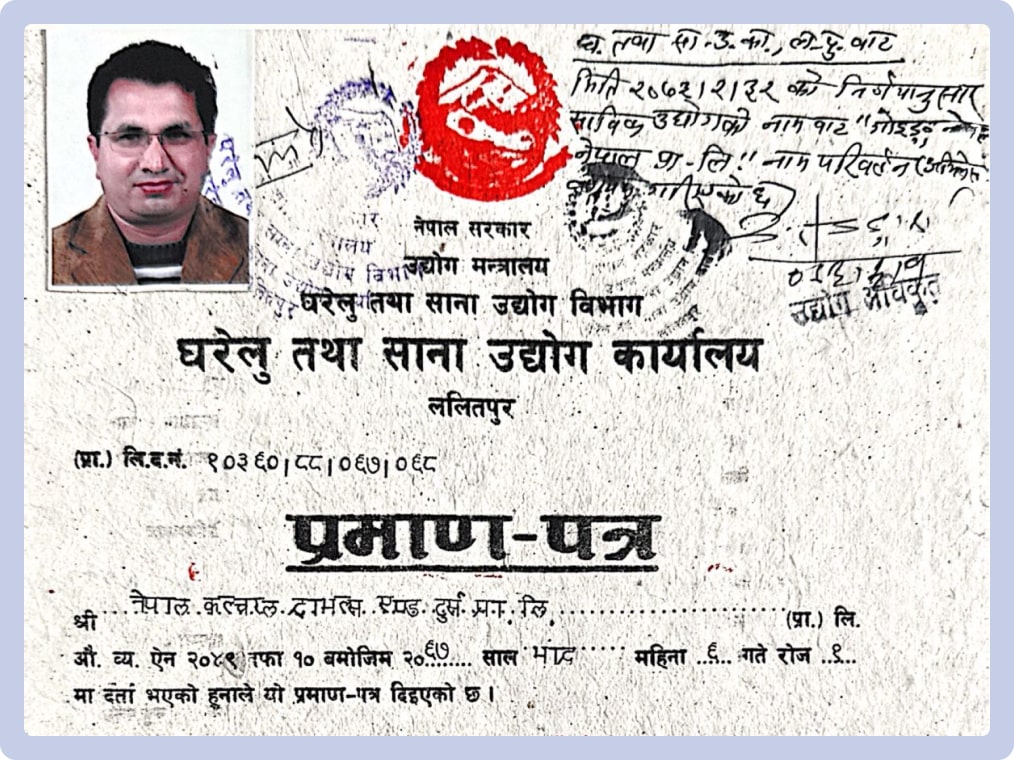 घ. तथा सा.उ.का., ल.पु. बाट
मिति २०७३।२।३२ को निर्णयानुसार
साविक उद्योगको नाम बाट "गोइङ्ग
नेपाल प्रा-लि" नाम परिवर्तन
गरिएको छ
नेपाल सरकार
उद्योग मन्त्रालय
घरेलु तथा साना उद्योग विभाग
घरेलु तथा साना उद्योग कार्यालय
ललितपुर
उद्योग अधिकृत
(प्रा.) लि.द.नं. १०३६०।८८।०६७।०६८
प्रमाण-पत्र
श्री ... नेपाल कल्चरल ट्राभल्स एण्ड टुर्स प्रा. लि. ... (प्रा.) लि.
औ. व्य. ऐन २०४९ दफा १० बमोजिम २०६७ साल भाद्र महिना ..६.. गते रोज ..१..
मा दर्ता भएको हुनाले यो प्रमाण-पत्र दिइएको छ ।